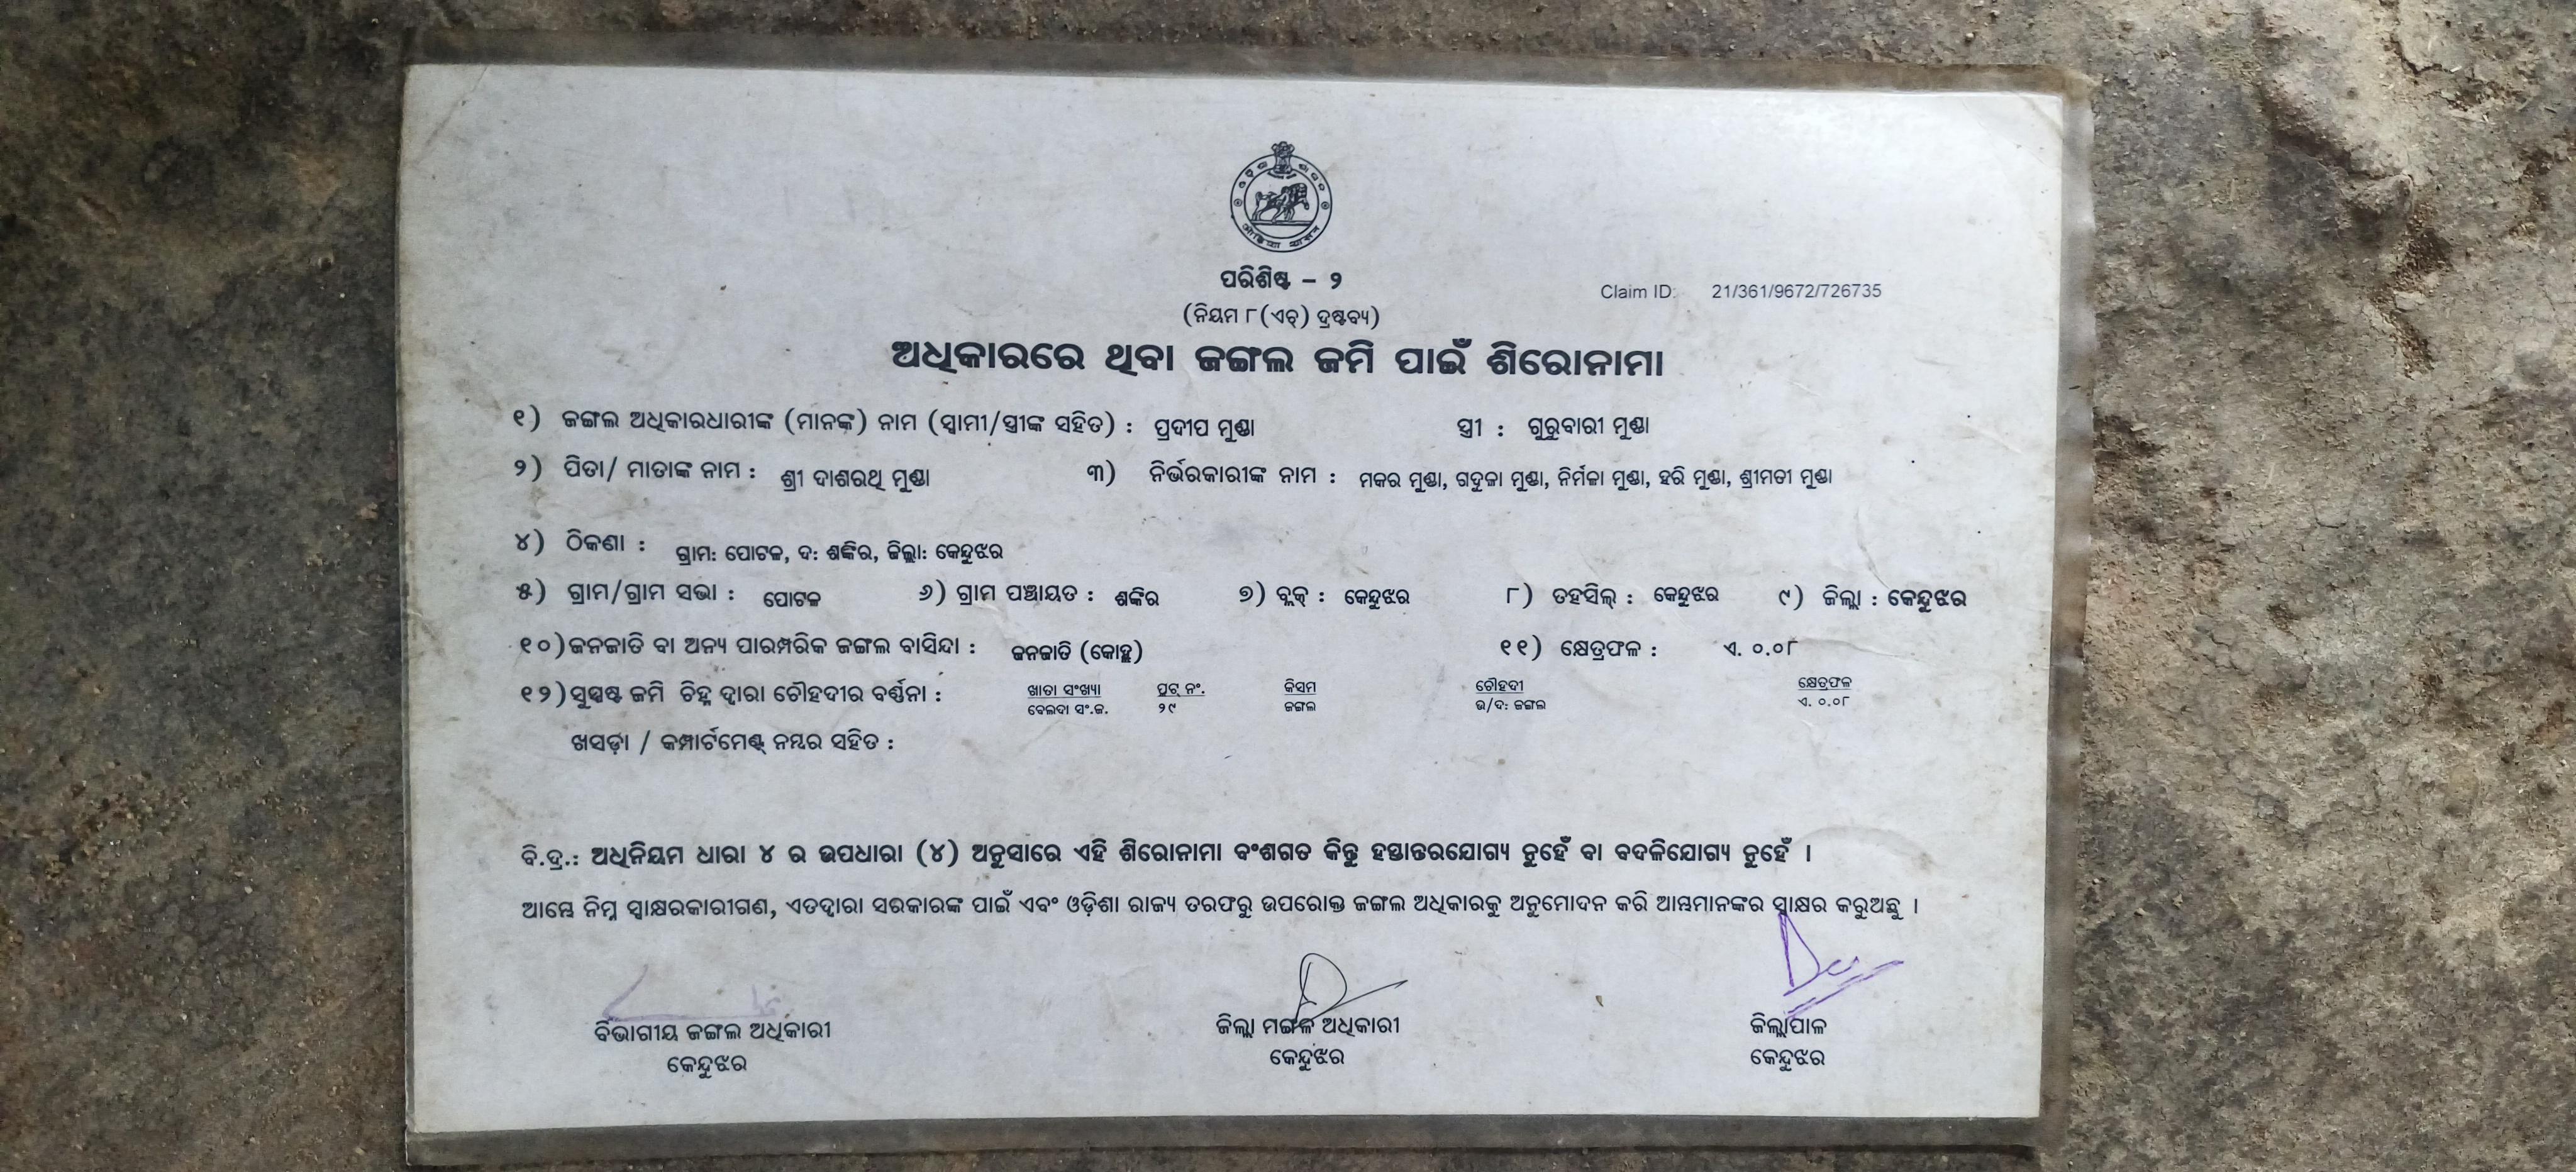 ପରିଶିଷ୍ଟ – ୨
Claim ID: 21/361/9672/726735
(ନିୟମ ୮(ଏଚ୍) ଦ୍ରଷ୍ଟବ୍ୟ)
ଅଧିକାରରେ ଥିବା ଜଙ୍ଗଲ ଜମି ପାଇଁ ଶିରୋନାମା
୧) ଜଙ୍ଗଲ ଅଧିକାରଧାରୀଙ୍କ (ମାନଙ୍କ) ନାମ (ସ୍ୱାମୀ/ସ୍ତ୍ରୀଙ୍କ ସହିତ) : ପ୍ରଦୀପ ମୁଣ୍ଡା ସ୍ତ୍ରୀ : ଗୁରୁବାରୀ ମୁଣ୍ଡା
୨) ପିତା/ ମାତାଙ୍କ ନାମ : ଶ୍ରୀ ଦାଶରଥି ମୁଣ୍ଡା ୩) ନିର୍ଭରକାରୀଙ୍କ ନାମ : ମକର ମୁଣ୍ଡା, ଗଦୁଳା ମୁଣ୍ଡା, ନିର୍ମଳା ମୁଣ୍ଡା, ହରି ମୁଣ୍ଡା, ଶ୍ରୀମତୀ ମୁଣ୍ଡା
୪) ଠିକଣା : ଗ୍ରାମ: ପୋଟଳ, ଦ: ଶଙ୍କିର, ଜିଲ୍ଲା: କେନ୍ଦୁଝର
୫) ଗ୍ରାମ/ଗ୍ରାମ ସଭା : ପୋଟଳ ୬) ଗ୍ରାମ ପଞ୍ଚାୟତ : ଶଙ୍କିର ୭) ବ୍ଲକ୍ : କେନ୍ଦୁଝର ୮) ତହସିଲ୍ : କେନ୍ଦୁଝର ୯) ଜିଲ୍ଲା : କେନ୍ଦୁଝର
୧୦) ଜନଜାତି ବା ଅନ୍ୟ ପାରମ୍ପରିକ ଜଙ୍ଗଲ ବାସିନ୍ଦା : ଜନଜାତି (କୋହ୍ଲ) ୧୧) କ୍ଷେତ୍ରଫଳ : ଏ. ୦.୦୮
୧୨) ସୁସ୍ପଷ୍ଟ ଜମି ଚିହ୍ନ ଦ୍ୱାରା ଚୌହଦୀର ବର୍ଣ୍ଣନା : ଖାତା ସଂଖ୍ୟା ପ୍ଲଟ୍ ନଂ. କିସମ ଚୌହଦୀ କ୍ଷେତ୍ରଫଳ
ବେଲଦା ସଂ.ଜ. ୨୯ ଜଙ୍ଗଲ ଉ/ଦ: ଜଙ୍ଗଲ ଏ. ୦.୦୮
ଖସଡ଼ା / କମ୍ପାର୍ଟମେଣ୍ଟ୍ ନମ୍ବର ସହିତ :
ବି.ଦ୍ର.: ଅଧିନିୟମ ଧାରା ୪ ର ଉପଧାରା (୪) ଅନୁସାରେ ଏହି ଶିରୋନାମା ବଂଶଗତ କିନ୍ତୁ ହସ୍ତାନ୍ତରଯୋଗ୍ୟ ନୁହେଁ ବା ବଦଳିଯୋଗ୍ୟ ନୁହେଁ ।
ଆମ୍ଭେ ନିମ୍ନ ସ୍ୱାକ୍ଷରକାରୀଗଣ, ଏତଦ୍ୱାରା ସରକାରଙ୍କ ପାଇଁ ଏବଂ ଓଡ଼ିଶା ରାଜ୍ୟ ତରଫରୁ ଉପରୋକ୍ତ ଜଙ୍ଗଲ ଅଧିକାରକୁ ଅନୁମୋଦନ କରି ଆମ୍ଭମାନଙ୍କର ସ୍ୱାକ୍ଷର କରୁଅଛୁ ।
ବିଭାଗୀୟ ଜଙ୍ଗଲ ଅଧିକାରୀ ଜିଲ୍ଲା ମଙ୍ଗଳ ଅଧିକାରୀ ଜିଲ୍ଲାପାଳ
କେନ୍ଦୁଝର କେନ୍ଦୁଝର କେନ୍ଦୁଝର